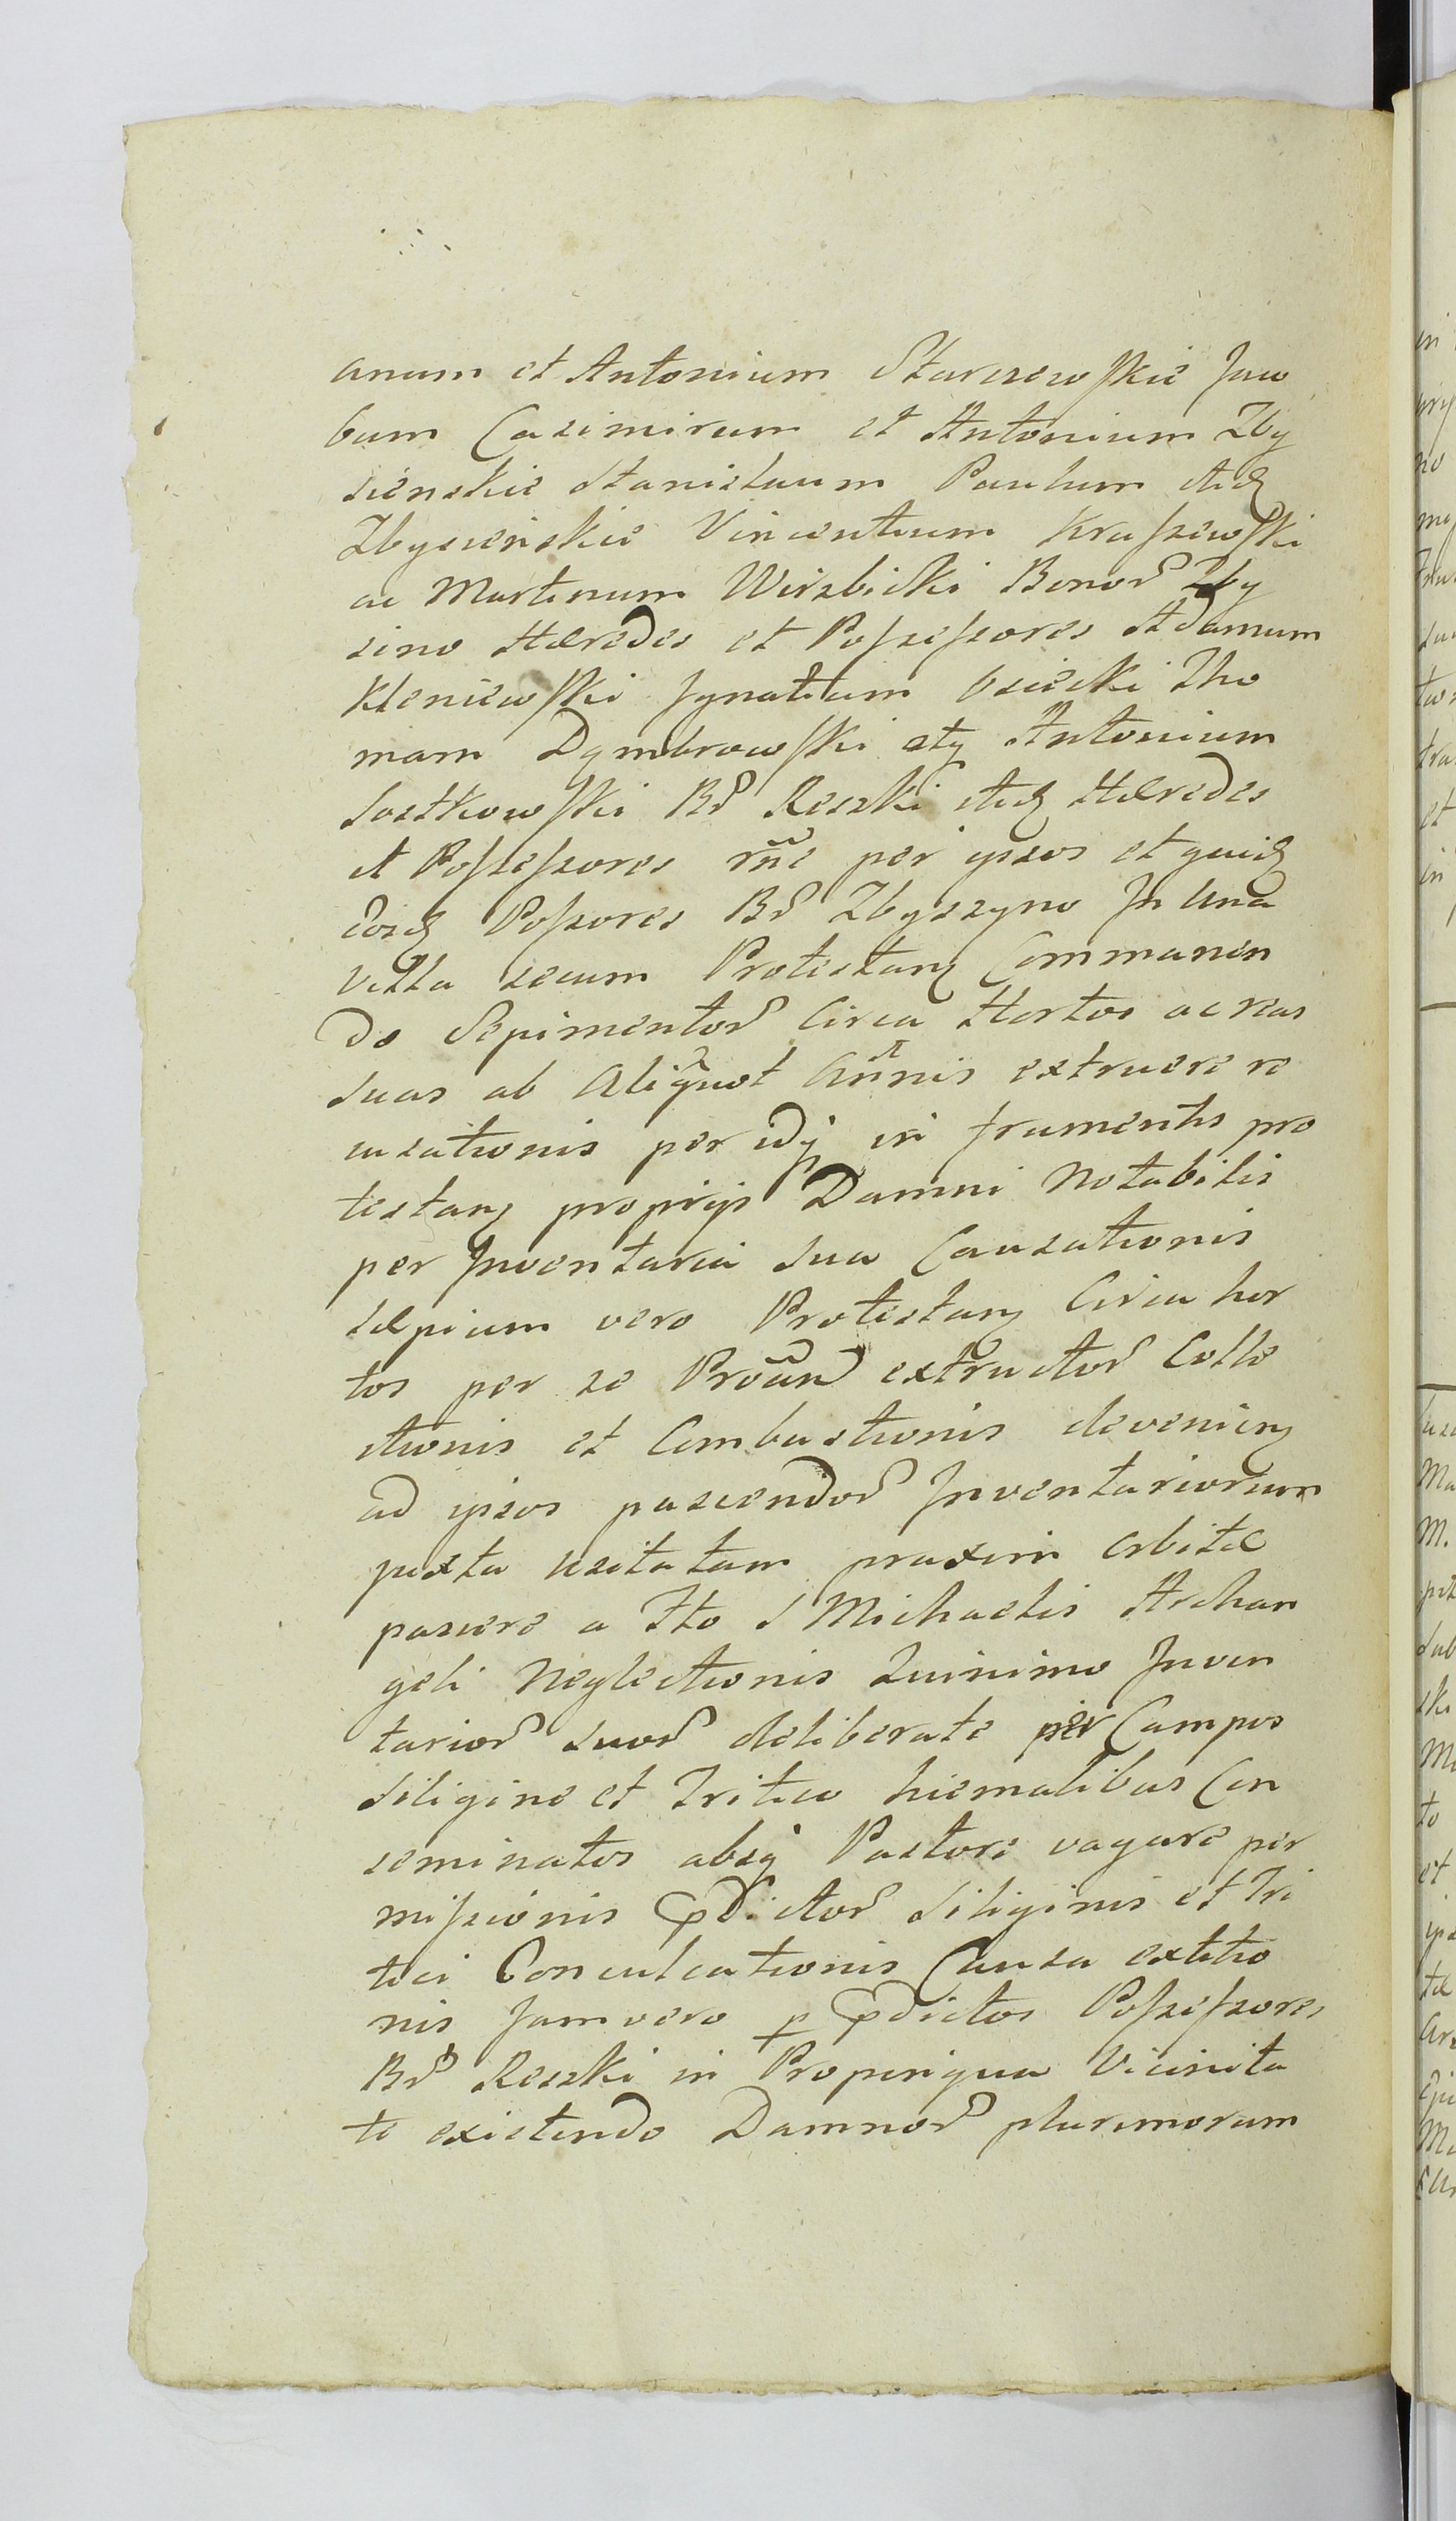 anum et Antonium Starczewskie Jaco
bum Casimirum et Antonium Zby
sienskie Stanislaum Paulum itidẽ
Zbysienskie Vincentium Kraszewski
ac Martinum Wirzbicki Bonor Zby
sino Hæredes et Possessores Adamum
Kleniewski Ignatium Osiecki Tho
mam Dymbrowski atq Antonium
Sostkowski Br Reszki itid Hæredes
et Possessores rñe per ipsos et quid
dosd Possores Br Zbyszyno In Una
Villa secum Protestan Commanen
do Sepimentor Circa Hortos ac reas
suas ab Aliquot Annis extruere re
cusationis per idq in frumentis pro
testan proprijs Damni Notabilis
per Inventaria sua Causationis
Sæpium vero Protestan Circa hor
tos per se Proan extructor Colle
ctionis et Combustionis devenien
ad ipsos pascendor Inventariorum
juxta usitatam praxim orbitæ
pascere a Fto S Michaelis Archan
geli Neglectionis Quinimo Inven
tarior suor deliberate per Campos
siligine et Tritico hiemalibus Con
seminatos absq Pastore vagare per
missionis prædictor siliginis et Tri
tici Conculcationis Causa extitio
nis Jam vero p prædictos Possessores
Br Reszki in Propinqua Vicinita
te existendo Damnor plurimorum